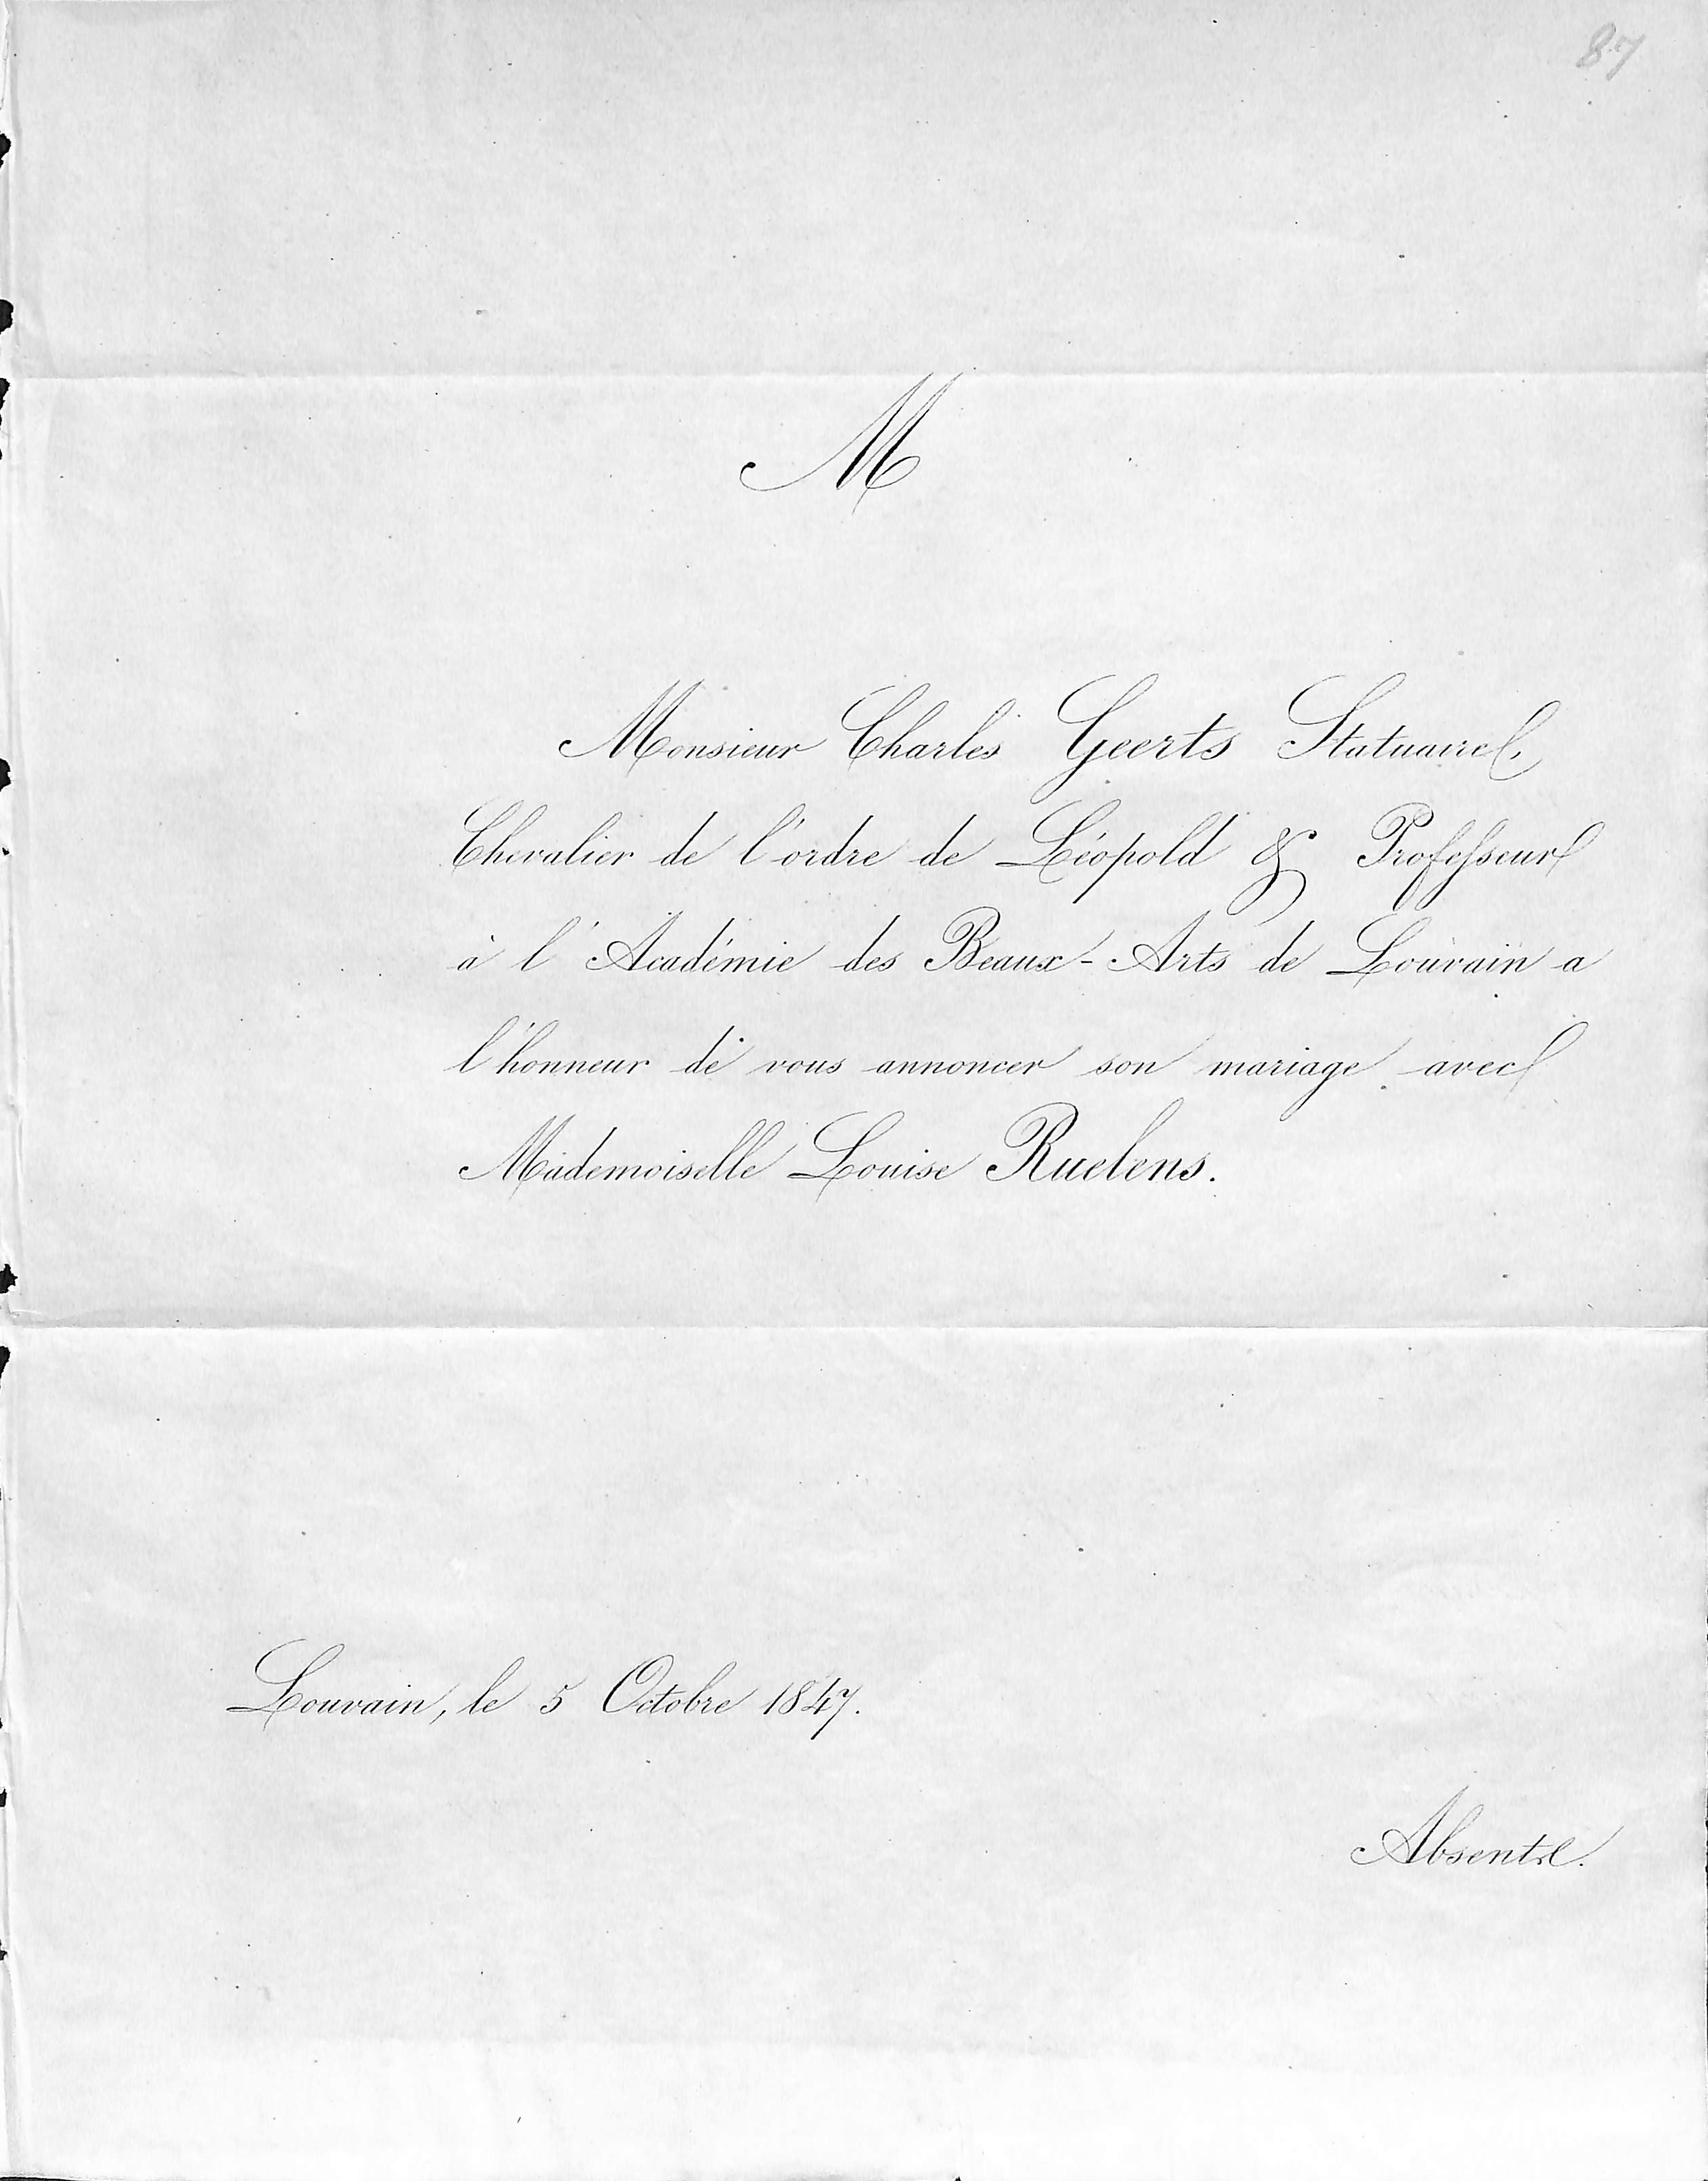 87
M
Monsieur Charles Geerts Statuaire,
Chevalier de l'ordre de Léopold & Professeur
à l'Académie des Beaux-Arts de Louvain a
l'honneur de vous annoncer son mariage avec
Mademoiselle Louise Ruelens.
Louvain, le 5 Octobre 1847.
Absents.